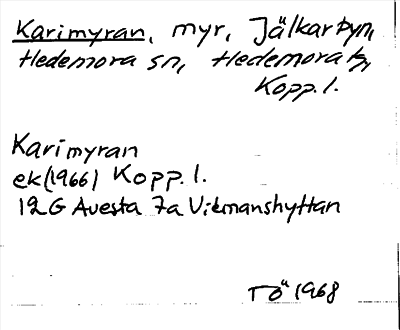 Karimyran, myr, Jälkarbyn,
Hedemora sn, Hedemora tg,
Kopp. l.
Karimyran
ek (1966) Kopp. l.
12G Avesta 7a Vikmanshyttan
TÖ 1968